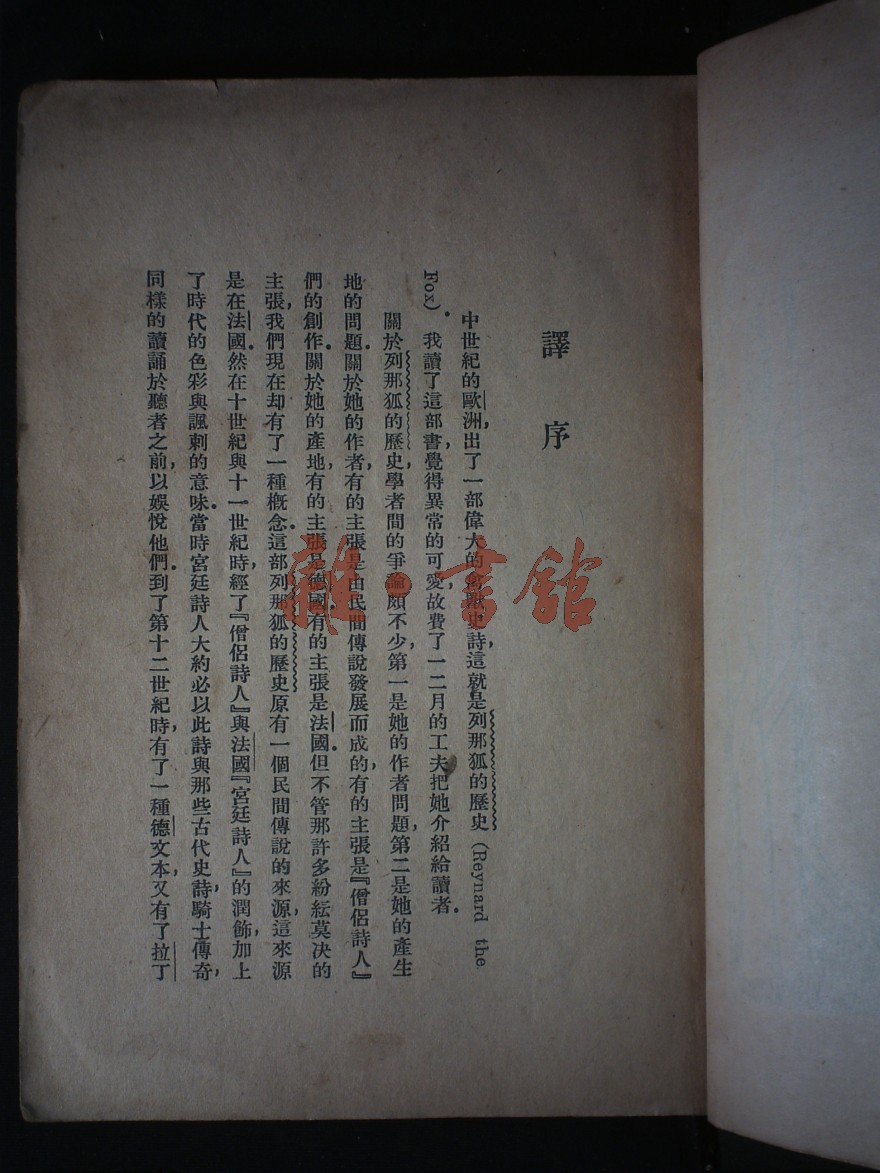 譯序
中世紀的歐洲，出了一部偉大的禽獸史詩，這就是列那狐的歷史（Reynard the
Fox）。我讀了這部書，覺得異常的可愛，故費了一二月的工夫把她介紹給讀者。
關於列那狐的歷史，學者間的爭論頗不少，第一是她的作者問題，第二是她的產生
地的問題。關於她的作者，有的主張是由民間傳說發展而成的，有的主張是『僧侶詩人』
們的創作。關於她的產地，有的主張是德國，有的主張是法國。但不管那許多紛紜莫决的
主張，我們現在却有了一種概念。這部列那狐的歷史原有一個民間傳說的來源，這來源
是在法國。然在十世紀與十一世紀時，經了『僧侶詩人』與法國『宮廷詩人』的潤飾，加上
了時代的色彩與諷刺的意味。當時宮廷詩人大約必以此詩與那些古代史詩，騎士傳奇，
同樣的讀誦於聽者之前，以娛悅他們。到了第十二世紀時，有了一種德文本，又有了拉丁
雜·書館